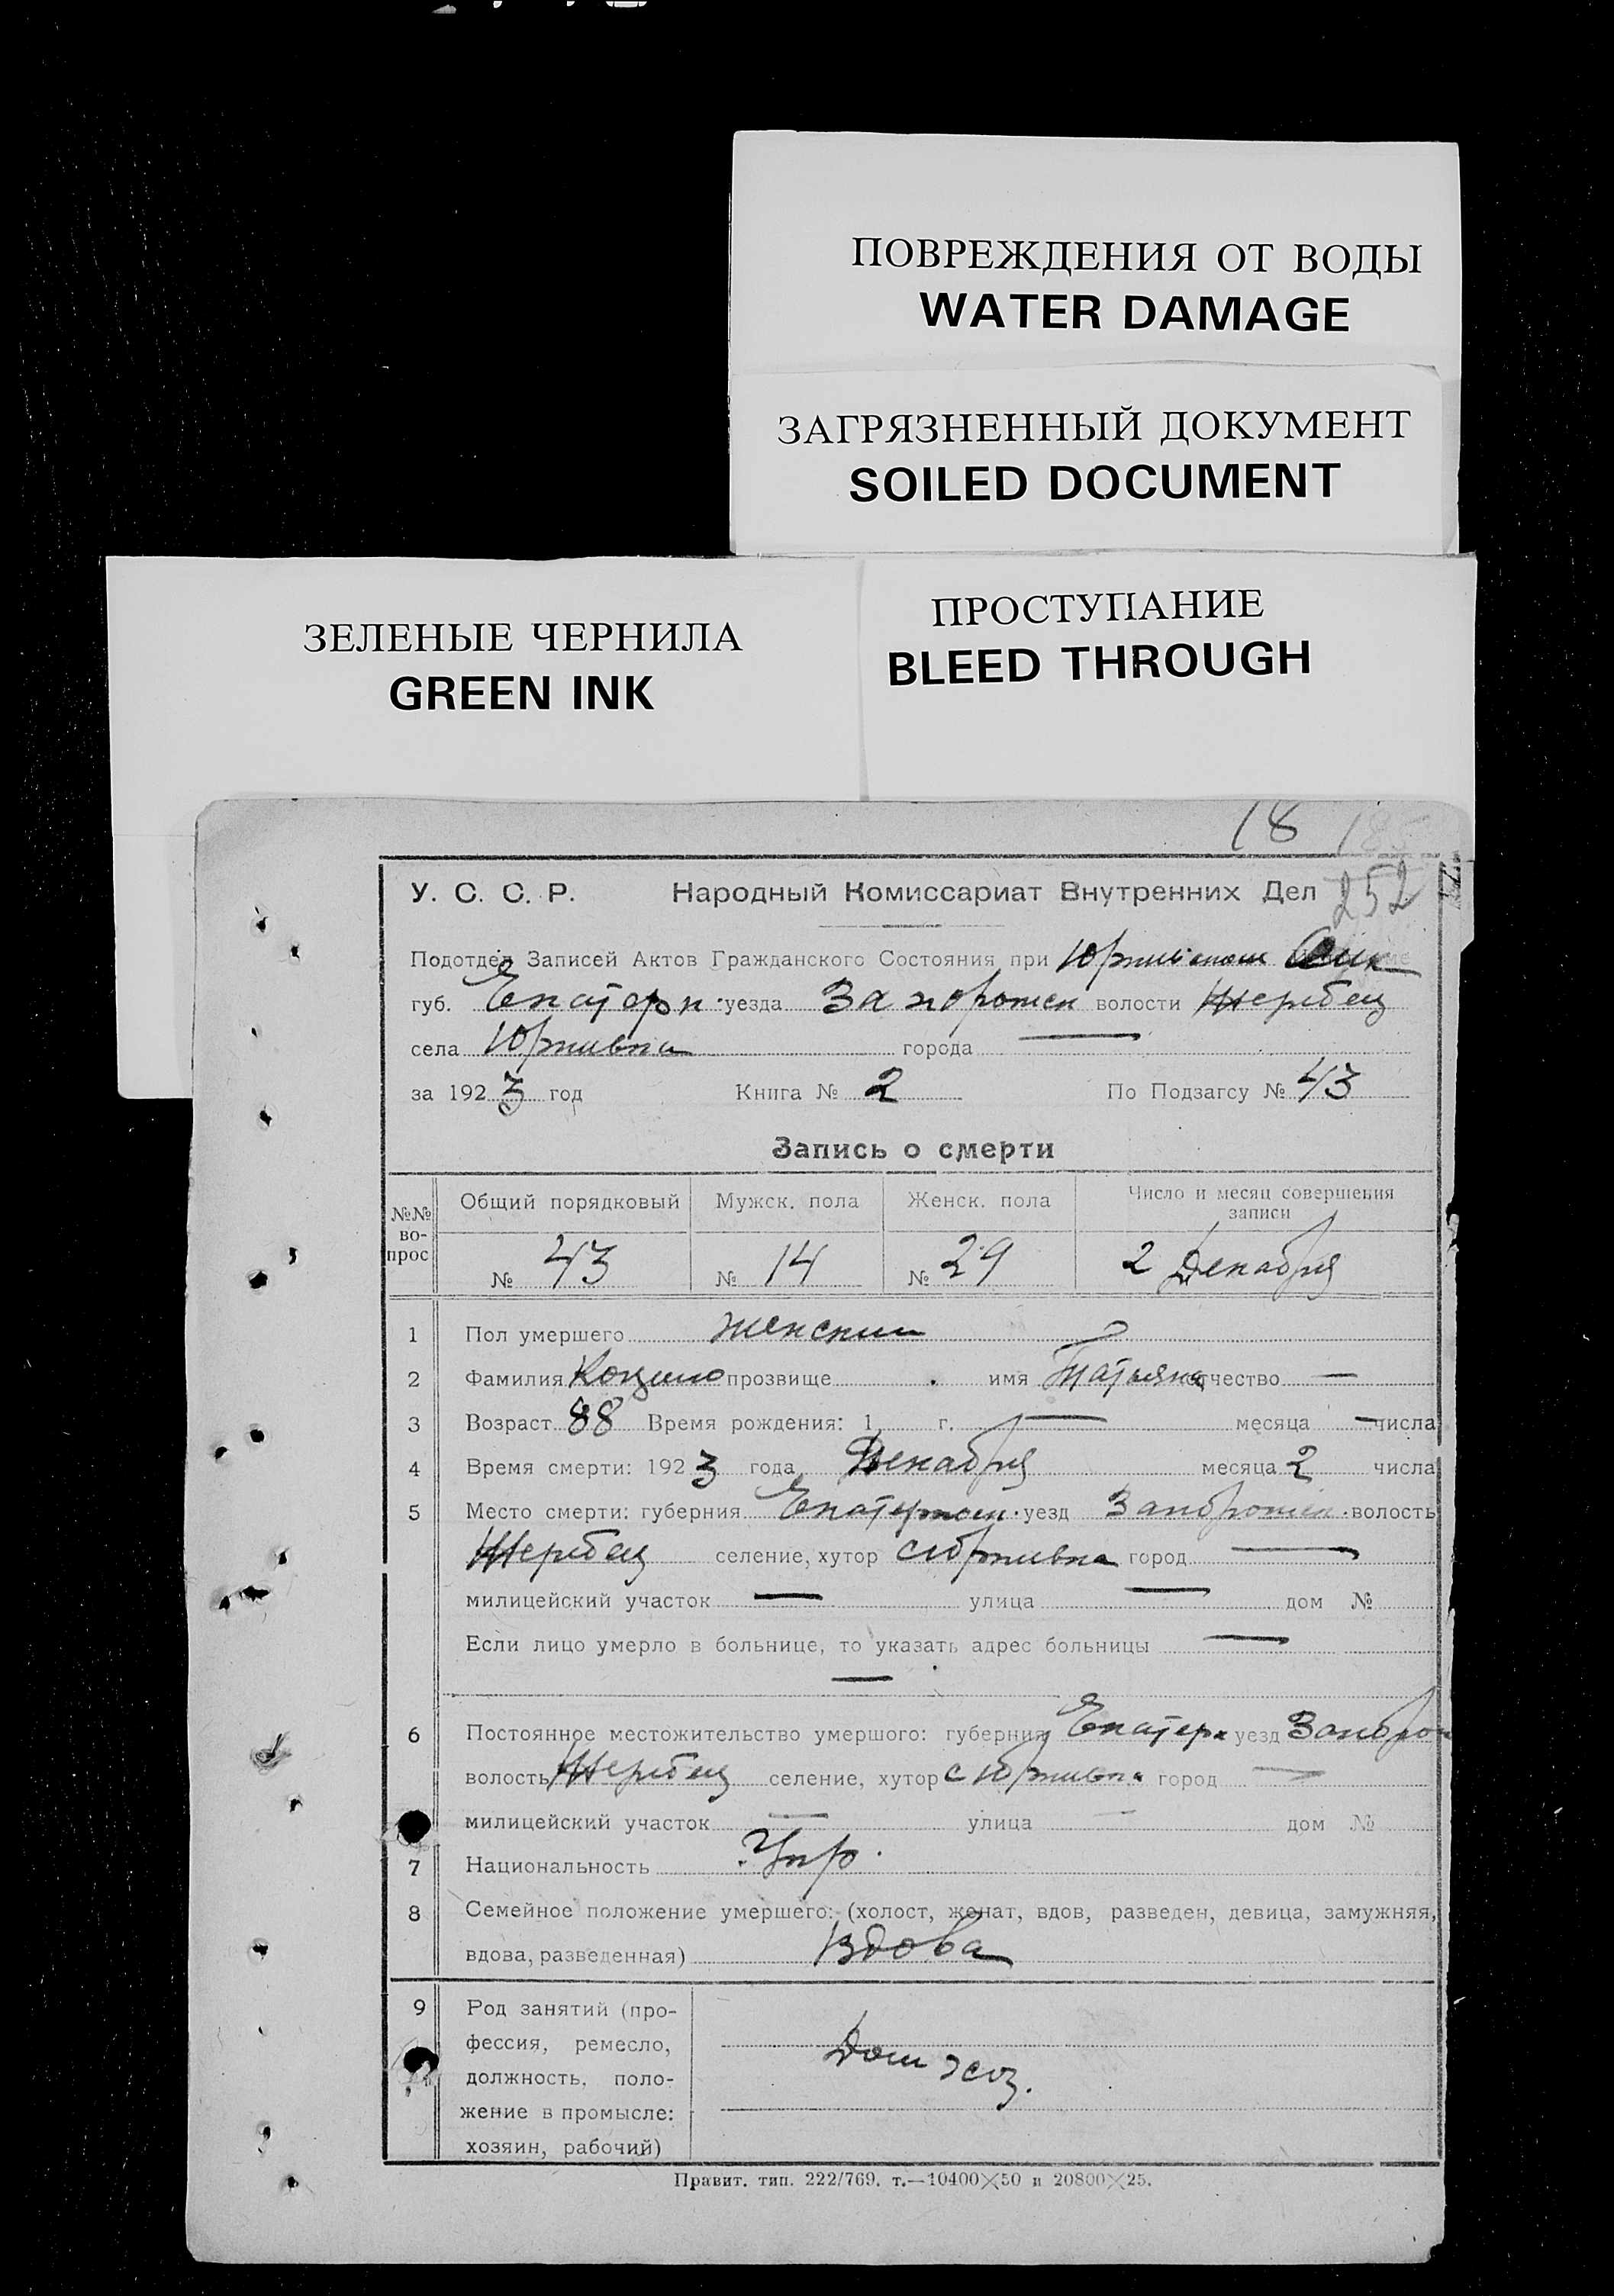 ПОВРЕЖДЕНИЯ ОТ ВОДЫ
WATER DAMAGE
ЗАГРЯЗНЕННЫЙ ДОКУМЕНТ
SOILED DOCUMENT
ЗЕЛЕНЫЕ ЧЕРНИЛА
GREEN INK
ПРОСТУПАНИЕ
BLEED THROUGH
18 185
У. С. С. Р. Народный Комиссариат Внутренних Дел 252
Подотдел Записей Актов Гражданского Состояния при
губ. Екатерн. уезда Запорожск волости Жеребец
села Юрживка города —
за 1923 год Книга № 2 По Подзагсу № 43
Запись о смерти
№№ во-прос Общий порядковый Мужск. пола Женск. пола Число и месяц совершения записи
№ 43 № 14 № 29 2 Декабря
1 Пол умершего женский
2 Фамилия прозвище имя Татьяна отчество —
3 Возраст 88 Время рождения: 1 г. — месяца — числа
4 Время смерти: 1923 года Декабря месяца 2 числа
5 Место смерти: губерния уезд волость
Жеребец селение, хутор с Юрживка город —
милицейский участок — улица — дом №
Если лицо умерло в больнице, то указать адрес больницы —
—
6 Постоянное местожительство умершого: губерния Екатерн уезд Запорож
волость Жеребец селение, хутор с Юрживка город —
милицейский участок — улица — дом №
7 Национальность Укр.
8 Семейное положение умершего: (холост, женат, вдов, разведен, девица, замужняя,
вдова, разведенная) Вдова
9 Род занятий (про-
фессия, ремесло,
должность, поло-
жение в промысле:
хозяин, рабочий)
Дом хоз.
Правит. тип. 222/769. т.—10400×50 и 20800×25.